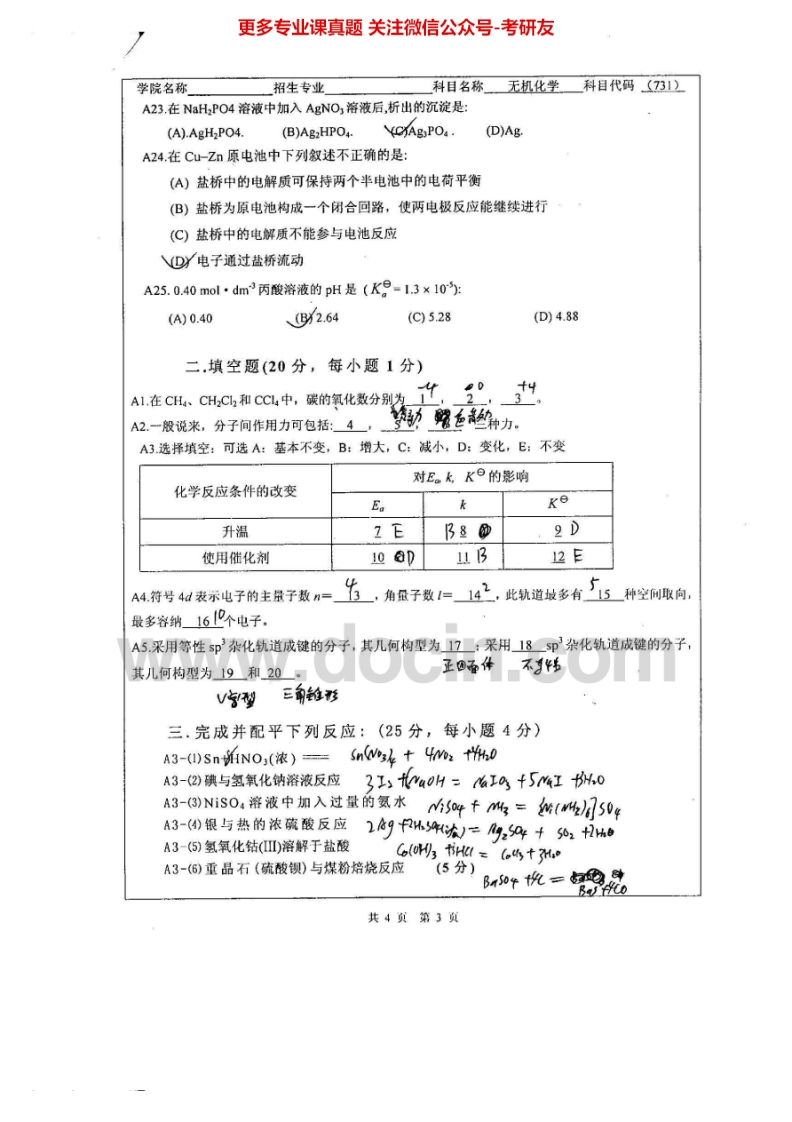 更多专业课真题 关注微信公众号-考研友
学院名称 招生专业 科目名称 无机化学 科目代码 (731)
A23.在 NaH₂PO4 溶液中加入 AgNO₃ 溶液后,析出的沉淀是:
(A).AgH₂PO4. (B)Ag₂HPO₄. (C)Ag₃PO₄ . (D)Ag.
A24.在 Cu–Zn 原电池中下列叙述不正确的是:
(A) 盐桥中的电解质可保持两个半电池中的电荷平衡
(B) 盐桥为原电池构成一个闭合回路，使两电极反应能继续进行
(C) 盐桥中的电解质不能参与电池反应
(D) 电子通过盐桥流动
A25. 0.40 mol·dm⁻³ 丙酸溶液的 pH 是 (Kₐ^⊖ = 1.3 × 10⁻⁵):
(A) 0.40 (B) 2.64 (C) 5.28 (D) 4.88
二.填空题(20 分，每小题 1 分)
-4 0 +4
A1.在 CH₄、CH₂Cl₂ 和 CCl₄ 中，碳的氧化数分别为 1 ， 2 ， 3 。
A2.一般说来，分子间作用力可包括: 4 ， 5 ， 三种力。
A3.选择填空：可选 A：基本不变，B：增大，C：减小，D：变化，E：不变
化学反应条件的改变 对Eₐ, k, K^⊖ 的影响
Eₐ k K^⊖
升温 7 E B 8 9 D
使用催化剂 10 D 11 B 12 E
A4.符号 4d 表示电子的主量子数 n= 13 4 ，角量子数 l= 14 2 ，此轨道最多有 5 15 种空间取向，
最多容纳 16 10 个电子。
A5.采用等性 sp³ 杂化轨道成键的分子，其几何构型为 17 ；采用 18 sp³ 杂化轨道成键的分子，
正四面体 不等性
其几何构型为 19 和 20 。
V字型 三角锥形
www.docin.com
三.完成并配平下列反应：(25 分，每小题 4 分)
A3-(1) Sn+HNO₃(浓) == Sn(NO₃)₄ + 4NO₂ +4H₂O
A3-(2) 碘与氢氧化钠溶液反应 3I₂ +6NaOH = NaIO₃ +5NaI +3H₂O
A3-(3) NiSO₄ 溶液中加入过量的氨水 NiSO₄ + NH₃ = [Ni(NH₃)₆]SO₄
A3-(4) 银与热的浓硫酸反应 2Ag +2H₂SO₄(浓) = Ag₂SO₄ + SO₂ +2H₂O
A3-(5) 氢氧化钴(III)溶解于盐酸 Co(OH)₃ + HCl = CoCl₃ +3H₂O
A3-(6) 重晶石(硫酸钡)与煤粉焙烧反应 (5 分) BaSO₄ +4C =
BaS +4CO
共 4 页 第 3 页